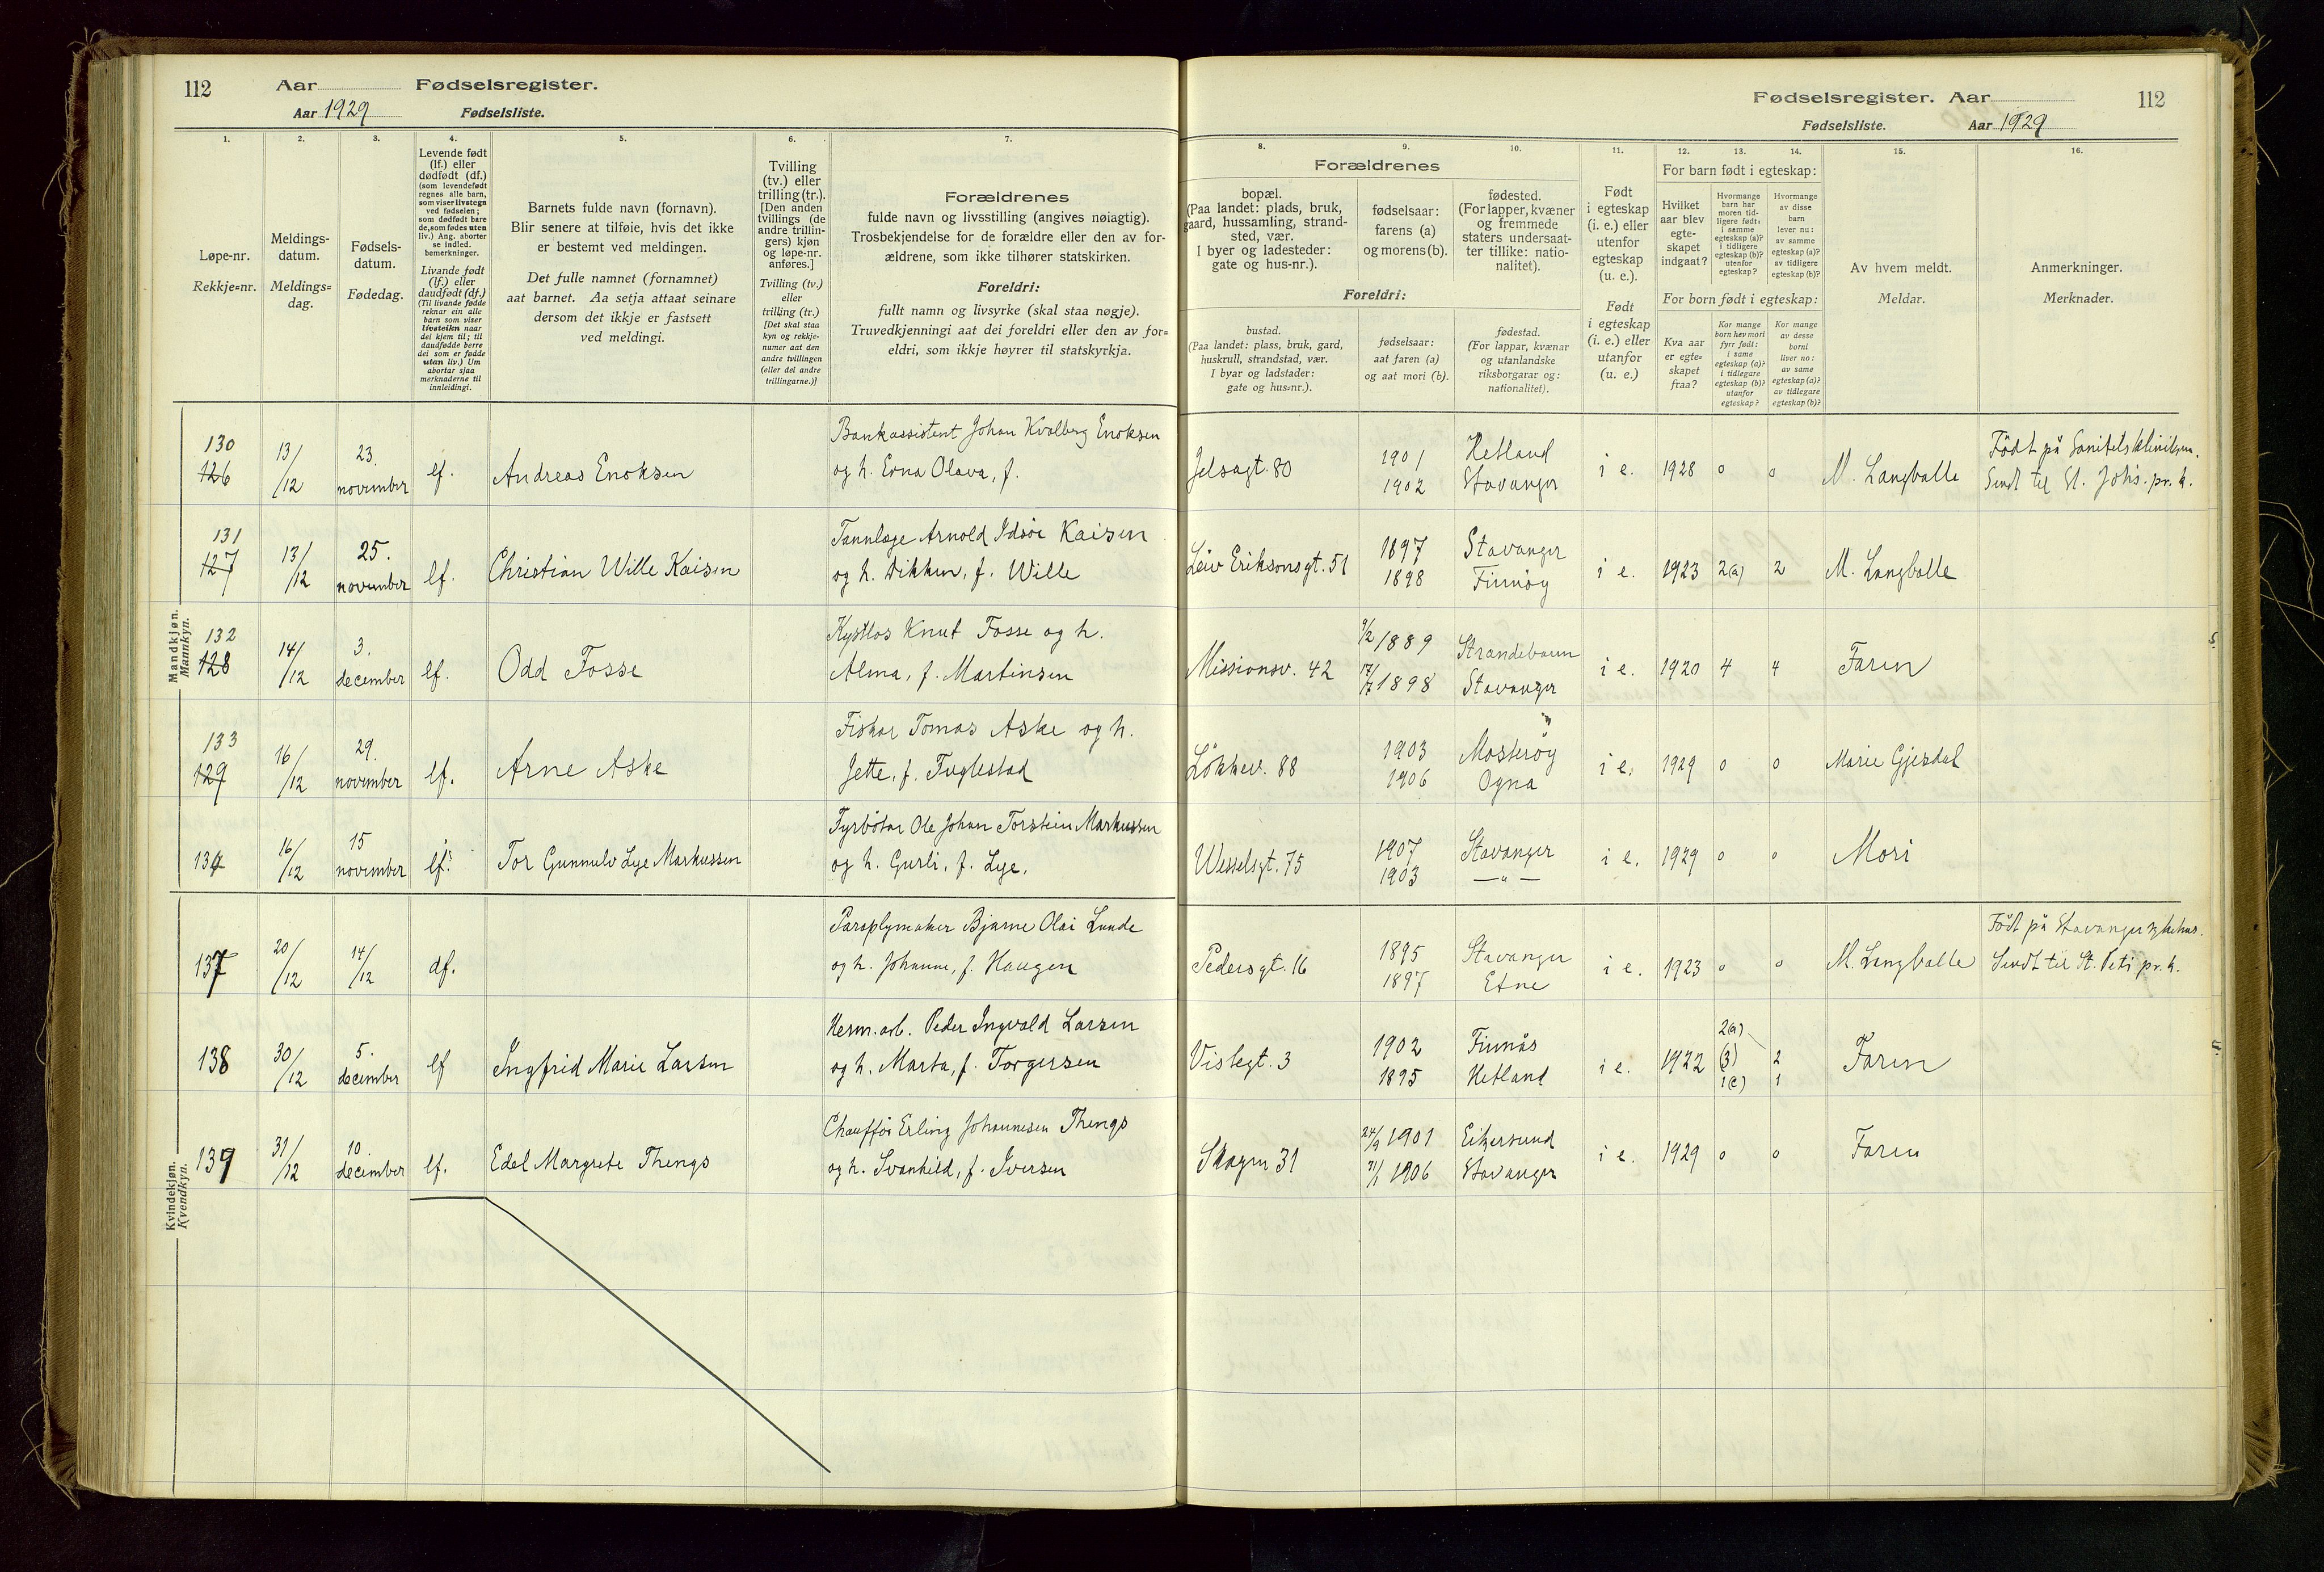 112 Aar Fødselsregister.
Aar 1929 Fødselsliste.
1. 2. 3. 4. 5. 6. 7.
Løpe-nr.
Rekkje=nr.
Meldings-
datum.
Meldings=
dag.
Fødsels-
datum.
Fødedag.
Levende født
(lf.) eller
dødfødt (df.)
(som levendefødt
regnes alle barn,
som viser livstegn
ved fødselen;
som dødfødt bare
de, som fødes uten
liv.) Ang. aborter
se indled.
bemerkninger.
Livande født
(lf.) eller
daudfødt (df.)
(Til livande fødde
reknar ein alle
barn som viser
livsteikn naar
dei kjem til; til
daudfødde berre
dei som er fødde
utan liv.) Um
abortar sjaa
merknaderne til
innleidingi.
Barnets fulde navn (fornavn).
Blir senere at tilføie, hvis det ikke
er bestemt ved meldingen.
Det fulle namnet (fornamnet)
aat barnet. Aa setja attaat seinare
dersom det ikkje er fastsett
ved meldingi.
Tvilling
(tv.) eller
trilling (tr.).
[Den anden
tvillings (de
andre trillin-
gers) kjøn
og løpe-nr.
anføres.]
Tvilling (tv.)
eller
trilling (tr.)
[Det skal staa
kyn og rekkje-
numer aat den
andre tvillingen
(eller dei andre
trillingarne.)]
Forældrenes
fulde navn og livsstilling (angives nøiagtig).
Trosbekjendelse for de forældre eller den av for-
ældrene, som ikke tilhører statskirken.
Foreldri:
fullt namn og livsyrke (skal staa nøgje).
Truvedkjenningi aat dei foreldri eller den av for=
eldri, som ikkje høyrer til statskyrkja.
Fødselsregister. Aar 112
Fødselsliste. Aar 1929
8. 9. 10. 11. 12. 13. 14. 15. 16.
Forældrenes
bopæl.
(Paa landet: plads, bruk,
gaard, hussamling, strand-
sted, vær.
I byer og ladesteder:
gate og hus-nr.).
fødselsaar:
farens (a)
og morens (b).
fødested.
(For lapper, kvæner
og fremmede
staters undersaat-
ter tillike: natio-
nalitet).
Foreldri:
bustad.
(Paa landet: plass, bruk, gard,
huskrull, strandstad, vær.
I byar og ladstader:
gate og hus=nr.).
fødselsaar:
aat faren (a)
og aat mori (b).
fødestad.
(For lappar, kvænar
og utanlandske
riksborgarar og:
nationalitet).
Født
i egteskap
(i. e.) eller
utenfor
egteskap
(u. e.).
Født
i egteskap
(i. e.) eller
utanfor
(u. e.)
For barn født i egteskap:
Hvilket
aar blev
egte-
skapet
indgaat?
Hvormange
barn har
moren tid-
ligere født:
i samme
egteskap (a)?
i tidligere
egteskap (b)?
utenfor
egteskap?
Hvormange
av disse
barn
lever nu:
av samme
egteskap (a)?
av tidligere
egteskap (b)?
For born født i egteskap:
Kva aar
er egte=
skapet
fraa?
Kor mange
born hev mori
fyrr født:
i same
egteskap (a)?
i tidlegare
egteskap (b)?
utanfor
egteskap?
Kor mange
av desse
borni
liver no:
av same
egteskap (a)?
av tidlegare
egteskap (b)?
Av hvem meldt.
Meldar.
Anmerkninger.
Merknader.
Mandkjøn.
Mannkyn.
130
126 13/12 23. november lf. Andreas Enoksen
Bankassistent Johan Kvalberg Enoksen
og h. Erna Olava, f.
Jelsagt. 80 1901 1902 Hetland Stavanger i e. 1928 0 0 M. Langballe
Født på Sanitetsklinikken.
Sendt til St. Johs. pr. k.
131
127 13/12 25. november lf. Christian Wille Kaisen
Tannlæge Arnold Idsøe Kaisen
og h. Dikken, f. Wille
Leiv Eriksonsgt. 51 1897 1898 Stavanger Finnöy i e. 1923 2(a) 2 M. Langballe
132
128 14/12 3. december lf. Odd Fosse
Kystlos Knut Fosse og h.
Alma, f. Martinsen
Missionsv. 42 9/2 1889 17/7 1898 Strandebarm Stavanger i e. 1920 4 4 Faren
133
129 16/12 29. november lf. Arne Aske
Fiskar Tomas Aske og h.
Jette, f. Fuglestad
Lökkev. 88 1903 1906 Mosteröy Ogna i e. 1929 0 0 Marie Gjesdal
134 16/12 15 november lf. Tor Gunnulv Lye Markussen
Fyrbötar Ole Johan Torstein Markussen
og h. Gurli, f. Lye.
Wesselsgt. 75 1907 1903 Stavanger — " — i e. 1929 0 0 Mori
Kvindekjøn.
Kvendkyn.
137 20/12 14/12 df.
Paraplymaker Bjarne Olai Lunde
og h. Johanne, f. Haugen
Pedersgt. 16 1895 1897 Stavanger Etne i e. 1923 0 0 M. Langballe
Født på Stavanger sykehus.
Sendt til St. Petri pr. k.
138 30/12 5. december lf Ingfrid Marie Larsen
Herm. arb. Peder Ingvald Larsen
og h. Marta, f. Torgersen
Vistegt. 3 1902 1895 Finnås Hetland i e. 1922 2(a) (3) 1(c) 2 1 Faren
139 31/12 10. december lf. Edel Margrete Thengs
Chaufför Erling Johannesen Thengs
og h. Svanhild, f. Iversen
Skagen 31 24/9 1901 31/1 1906 Eikersund Stavanger i e. 1929 0 0 Faren